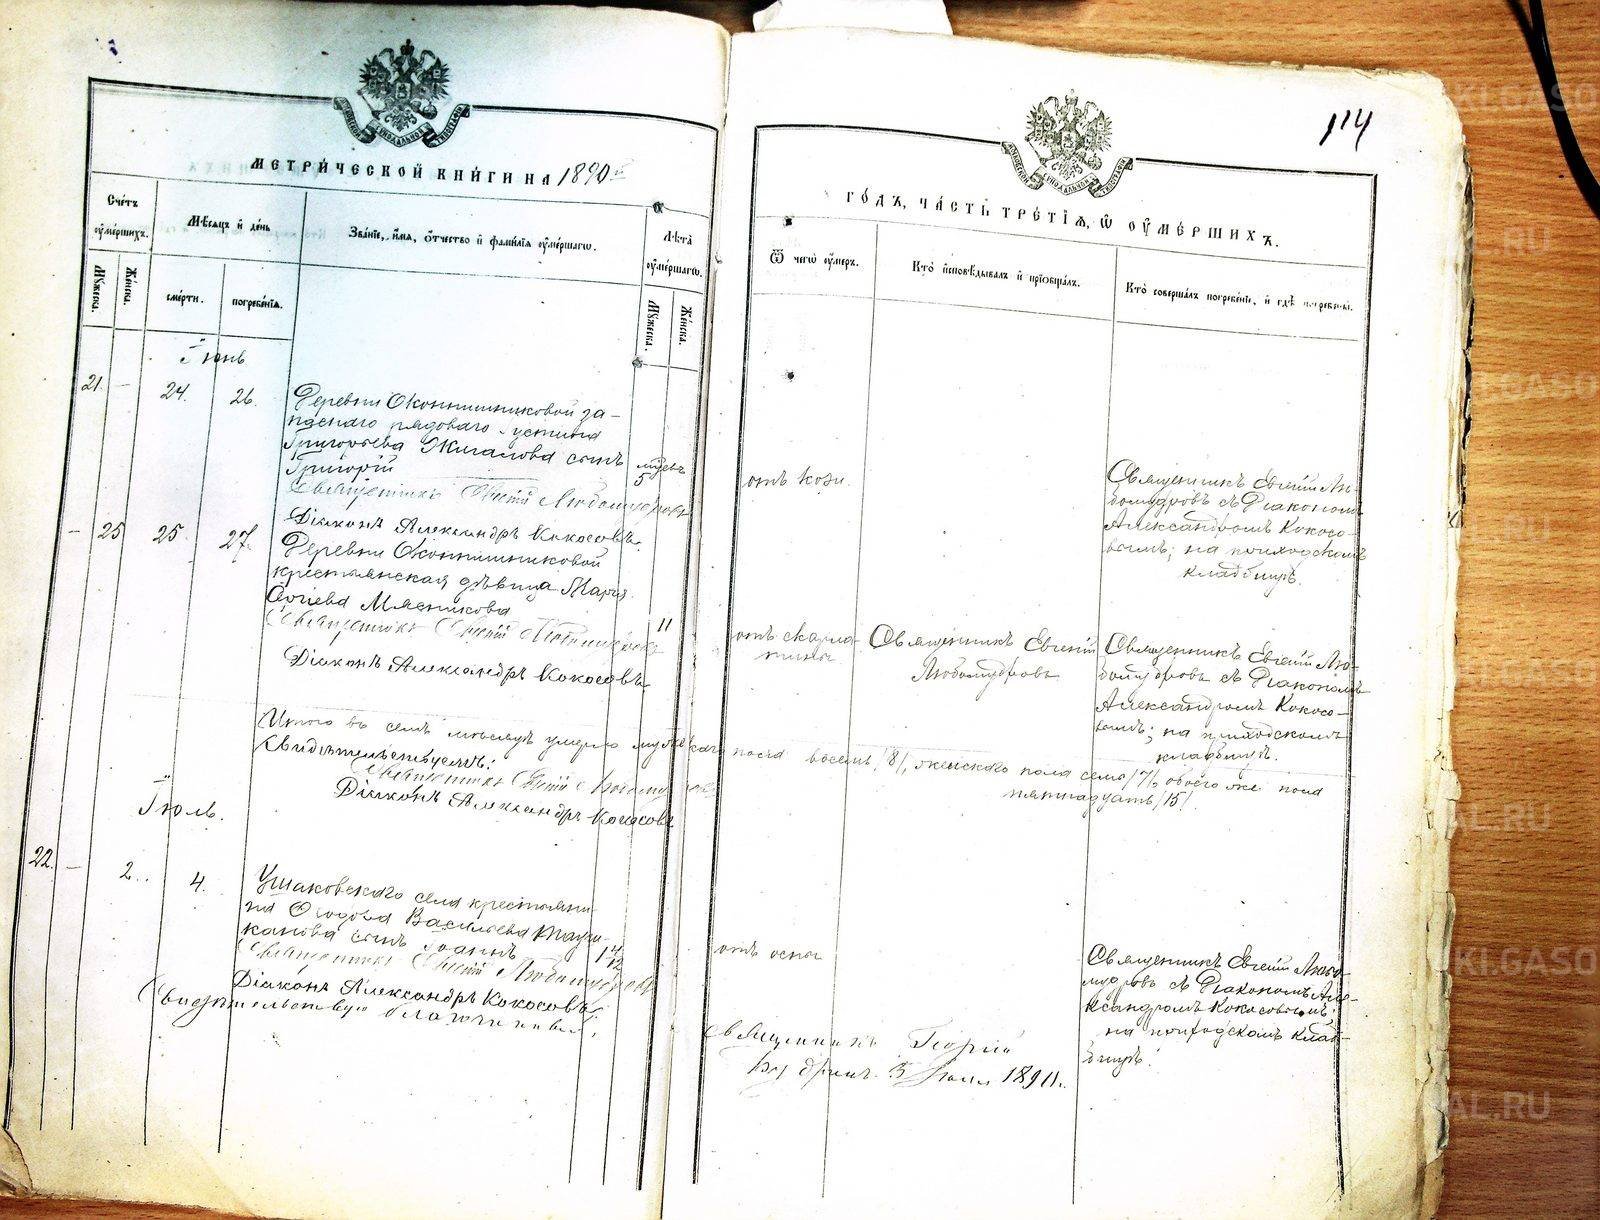 114
МЕТРИ́ЧЕСКОЙ КНИ́ГИ НА 1890й
ГО́ДЪ, ЧА́СТЬ ТРЕ́ТІѦ, Ѿ ОУ҆МЕ́РШИХЪ.
Сче́тъ оу҆ме́ршихъ.
Мѣ́сяцъ и де́нь
Зва́ніе, и́мя, о́тчество и фами́лія оу҆ме́ршагѡ.
Лѣ́та оу҆ме́ршагѡ.
Ѿ чегѡ̀ оу҆́меръ.
Кто̀ и҆сповѣ́дывалъ и҆ прїѡбща́лъ.
Кто̀ соверша́лъ погребе́ніе, и гдѣ̀ погребены̀.
Мꙋ́жеска.
Же́нска.
сме́рти.
погребе́нія.
Мꙋ́жеска.
Же́нска.
Іюнь
21. — 24. 26.
Деревни Оконтишниковой за-
паснаго рядоваго Устина
Григорьева Жигалова сынъ
Григорій
5
Священникъ Евгеній Любомудровъ
Діаконъ Александръ Кокосовъ.
отъ кори.
Священникъ Евгеній Лю-
бомудровъ съ Діакономъ
Александромъ Кокосо-
вымъ; на приходскомъ
кладбищѣ.
— 25 25. 27.
Деревни Оконтишниковой
крестьянская дѣвица Марія
Мясникова
11
Священникъ Евгеній Любомудровъ
Діаконъ Александръ Кокосовъ
отъ скарла-
тины
Священникъ Евгеній
Любомудровъ
Священникъ Евгеній Лю-
бомудровъ съ Діакономъ
Александромъ Кокосо-
вымъ; на приходскомъ
кладбищѣ.
Итого въ семъ мѣсяцѣ умерло мужескаго пола восемь /8/, женскаго пола семь /7/, обоего же пола
пятнадцать /15/.
Свидѣтельствуемъ:
Священникъ Евгеній Любомудровъ
Діаконъ Александръ Кокосовъ
Іюль.
22. — 2. 4.
Ушаковскаго села крестьяни-
на Ѳедора Васильева
сынъ Іоаннъ
1 4/12
Священникъ Евгеній Любомудровъ
Діаконъ Александръ Кокосовъ
отъ оспы
Священникъ Евгеній Любо-
мудровъ съ Діакономъ Але-
ксандромъ Кокосовымъ;
на приходскомъ клад-
бищѣ.
Свидѣтельствую благочинный,
Священникъ Георгій